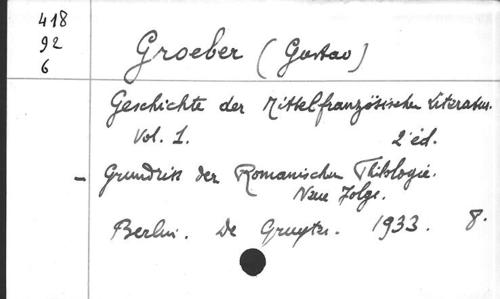 418
92
6
Groeber (Gustav)
Geschichte der Mittelfranzösischen Literatur.
Vol. 1. 2 éd.
- Grundriss der Romanischen Philologie.
Neue Folge.
Berlin. De Gruyter. 1933. 8.